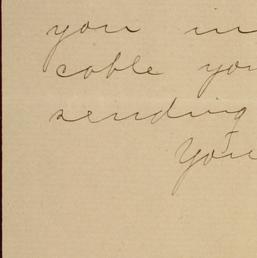 you in
cable you
sending
You